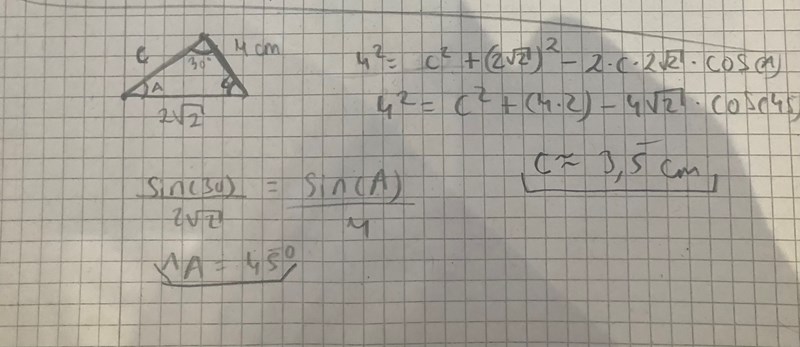 C
4 cm
30°
A
2√2
4² = c² + (2√2)² - 2·c·2√2 · cos(A)
4² = c² + (4·2) - 4√2 · cos(45)
C ≈ 3,5 cm
sin(30) / 2√2 = sin(A) / 4
∧A = 45°